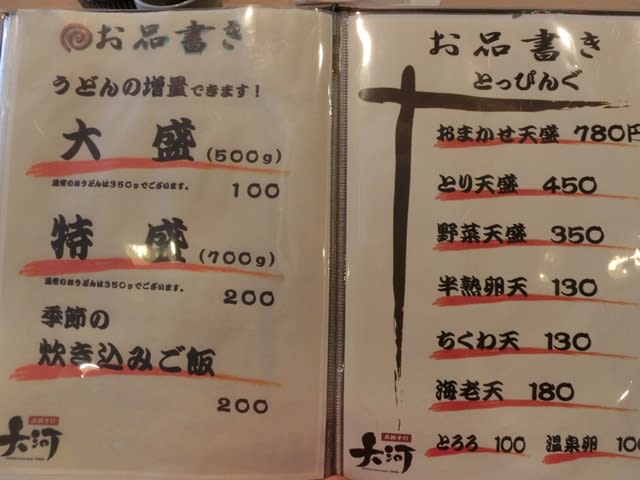 お品書き
うどんの増量できます!
大盛(500g)
通常のおうどんは350gでございます。
100
特盛(700g)
通常のおうどんは350gでございます。
200
季節の
炊き込みご飯
200
大河
お品書き
とっぴんぐ
おまかせ天盛 780円
とり天盛 450
野菜天盛 350
半熟卵天 130
ちくわ天 130
海老天 180
とろろ 100 温泉卵 100
大河